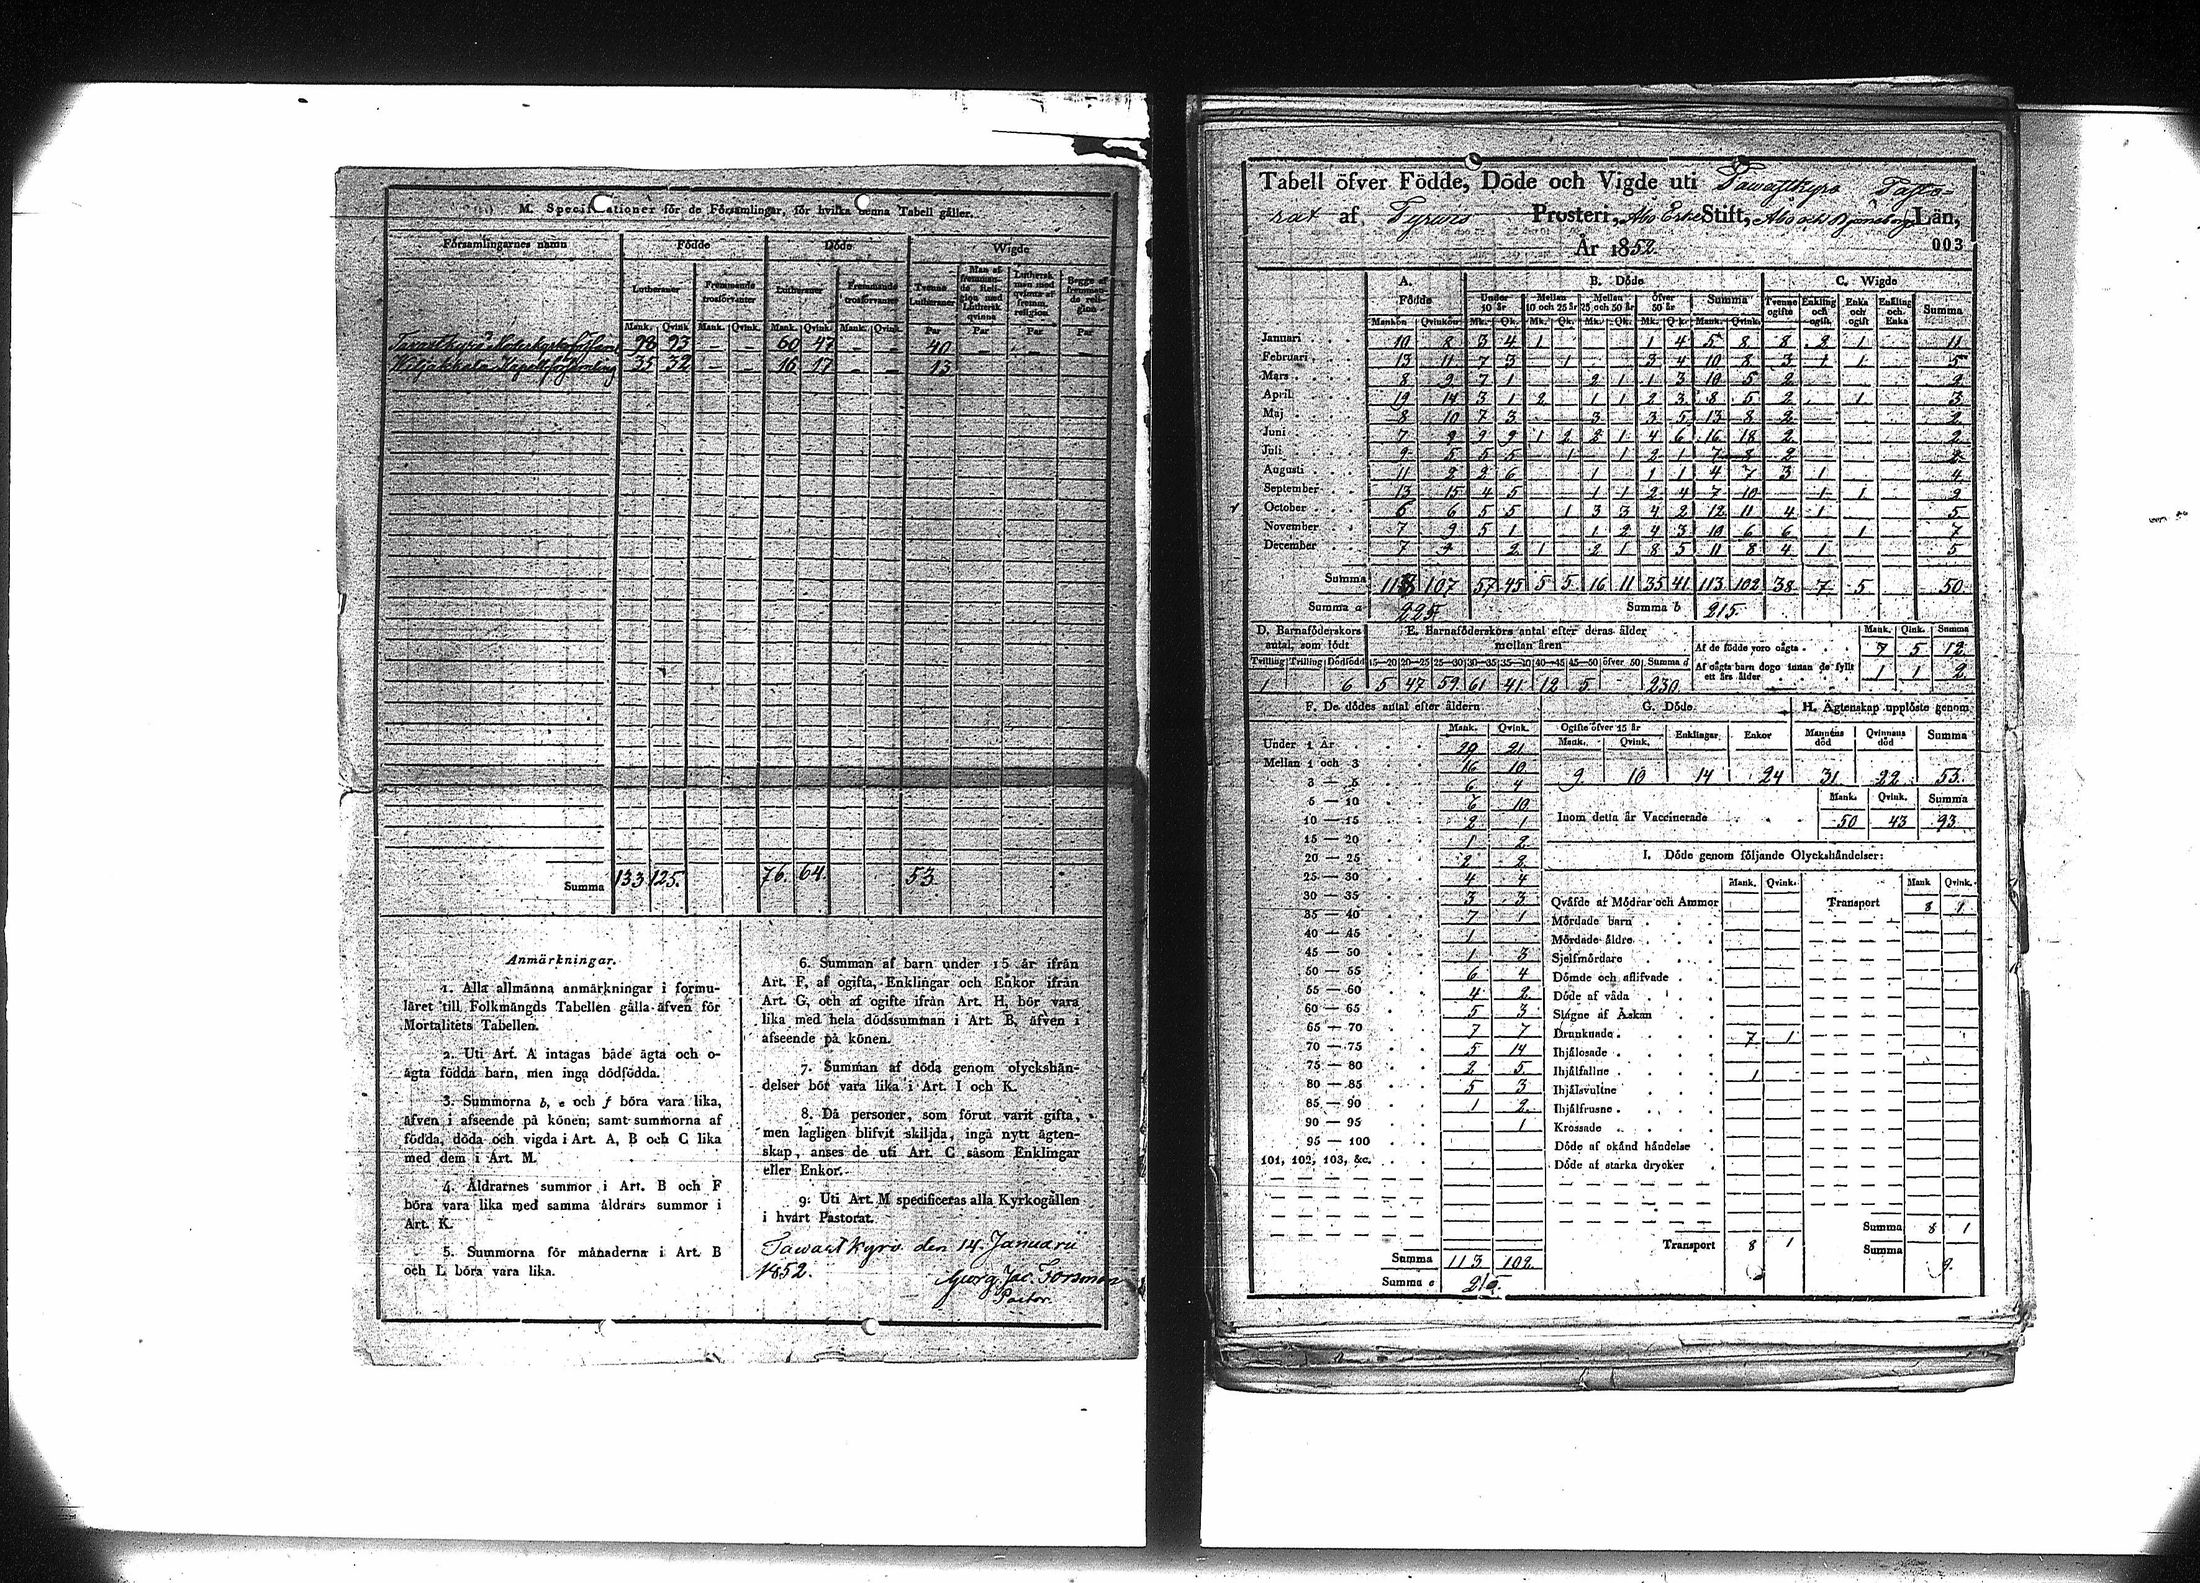 M. Specifikationer för de Församlingar, för hvilka denna Tabell gäller.
Församlingarnes namn Födde Döde Wigde
Lutheraner Fremmande trosförvanter Lutheraner Fremmande trosförvanter Tvenne Lutheraner Man af fremmande Religion med Luthersk qvinna Luthersk man med qvinna af fremm. religion Begge af fremmande religion
Mank. Qvink. Mank. Qvink. Mank. Qvink. Mank. Qvink. Par Par Par Par
Tavastkyrö Moderkyrkoförsaml. 98 93 — — 60 47 — — 40 — — —
Wiljakkala Kapellförsamling 35 32 — — 16 17 — — 13
Summa 133 125. 76. 64. 53
Anmärkningar.
1. Alla allmänna anmärkningar i formu-
läret till Folkmängds Tabellen gälla äfven för
Mortalitets Tabellen.
2. Uti Art. A intagas både ägta och o-
ägta födda barn, men inga dödfödda.
3. Summorna b, e och f böra vara lika,
äfven i afseende på könen; samt summorna af
födda, döda och vigda i Art. A, B och C lika
med dem i Art. M.
4. Åldrarnes summor i Art. B och F
böra vara lika med samma åldrars summor i
Art. K.
5. Summorna för månaderna i Art. B
och L böra vara lika.
6. Summan af barn under 15 år ifrån
Art. F, af ogifta, Enklingar och Enkor ifrån
Art. G, och af ogifte ifrån Art. H, bör vara
lika med hela dödssumman i Art. B, äfven i
afseende på könen.
7. Summan af döda genom olyckshän-
delser bör vara lika i Art. I och K.
8. Då personer, som förut varit gifta,
men lagligen blifvit skiljda, ingå nytt ägten-
skap, anses de uti Art. C såsom Enklingar
eller Enkor.
9. Uti Art. M specificeras alla Kyrkogällen
i hvart Pastorat.
Tawastkyro den 14. Januarii
1852.
Georg Jac. Forsman
Pastor.
Tabell öfver Födde, Döde och Vigde uti Tawastkyro Pasto-
rat af Tyrvis Prosteri, Åbo Erke Stift, Åbo och Björneborgs Län,
År 1852. 003
A. Födde B. Döde C. Wigde
Under 10 år Mellan 10 och 25 år Mellan 25 och 50 år Öfver 50 år Summa Tvenne ogifte Enkling och ogift. Enka och ogift Enkling och Enka Summa
Mankön Qvinkön Mk. Qk. Mk. Qk. Mk. Qk. Mk. Qk. Mank. Qvink.
Januari 10 8 3 4 1 1 4 5 8 8 2 1 11
Februari 13 11 7 3 1 3 4 10 8 3 1 1 5
Mars 8 9 7 1 2 1 1 3 10 5 2 2
April 19 14 3 1 2 1 1 2 3 8 5 2 1 3
Maj 8 10 7 3 3 3 5 13 8 2 2
Juni 7 9 9 9 1 2 2 1 4 6 16 18 2 2
Juli 9 5 5 5 1 1 2 1 7 8 2 2
Augusti 11 2 2 6 1 1 1 4 7 3 1 4
September 13 15 4 5 1 1 2 4 7 10 1 1 2
October 6 6 5 5 1 3 3 4 2 12 11 4 1 5
November 7 9 5 1 1 2 4 3 10 6 6 1 7
December 7 9 2 1 2 1 8 5 11 8 4 1 5
Summa 118 107 57 45 5 5 16 11 35 41 113 102 38 7 5 50
Summa a 225 Summa b 215.
D. Barnaföderskors antal, som födt E. Barnaföderskors antal efter deras ålder mellan åren Mank. Qink. Summa
Af de födde voro oägta 7 5 12
Tvilling Trilling Dödfödd 15—20 20—25 25—30 30—35 35—40 40—45 45—50 öfver 50 Summa d
Af oägta barn dogo innan de fyllt ett års ålder 1 1 2
1 6 5 47 59 61 41 12 5 230.
F. De dödes antal efter åldern G. Döde H. Ägtenskap upplöste genom
Mank. Qvink. Ogifte öfver 15 år Enklingar Enkor Mannens död Qvinnans död Summa
Mank. Qvink.
Under 1 År 29 21
Mellan 1 och 3 16 10
9 10 14 24 31 22 53
3 — 5 6 4
5 — 10 6 10
Mank. Qvink. Summa
Inom detta år Vaccinerade 50 43 93
10 — 15 2 1
15 — 20 1 2
20 — 25 2 2
25 — 30 4 4
30 — 35 3 3
35 — 40 7 1
40 — 45 1
45 — 50 1 3
50 — 55 6 4
55 — 60 4 2
60 — 65 5 3
65 — 70 7 7
70 — 75 5 14
75 — 80 2 5
80 — 85 5 3
85 — 90 1 2
90 — 95 1
95 — 100
101, 102, 103, &c.
Summa 113 102
Summa e 215.
I. Döde genom följande Olyckshändelser:
Mank. Qvink. Mank Qvink.
Qväfde af Mödrar och Ammor Transport 8 1
Mördade barn
Mördade äldre
Sjelfmördare
Dömde och aflifvade
Döde af våda
Slagne af Åskan
Drunknade 7 1
Ihjälosade
Ihjälfallne 1
Ihjälsvultne
Ihjälfrusne
Krossade
Döde af okänd händelse
Döde af starka drycker
Summa 8 1
Transport 8 1
Summa 9.